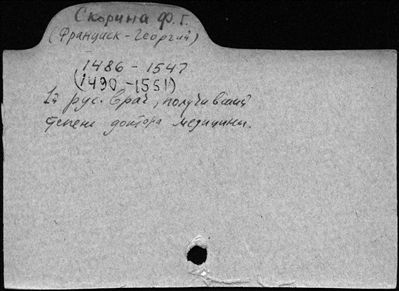 Скорина Ф. Г.
(Франциск-Георгий)
1486 - 1547
(1490 - 1551)
1й рус. врач, получивший
степень доктора медицины.